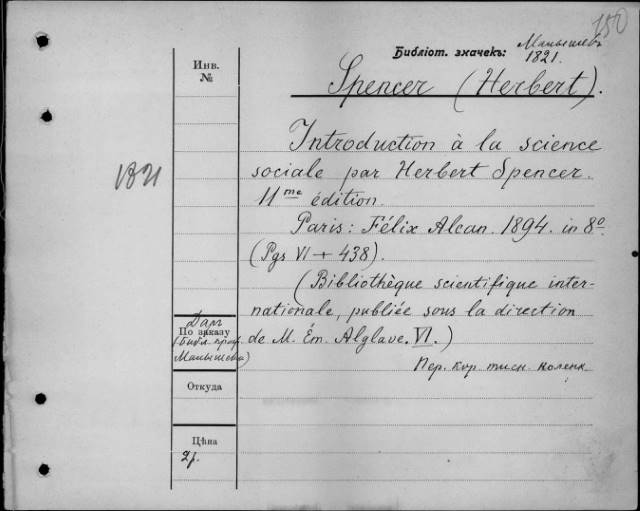 150
Библіот. значекъ: Малышевъ
1821.
Инв.
№
Spencer (Herbert).
1821
Introduction à la science
sociale par Herbert Spencer.
11me édition.
Paris: Félix Alcan. 1894. in 8º
(Pgs VI + 438).
(Bibliothèque scientifique inter-
nationale, publiée sous la direction
de M. Ém. Alglave. VI.)
Даръ
По заказу
(Библ. проф.
Малышева)
Пер. кор. тисн. коленк.
Откуда
Цѣна
2 р.